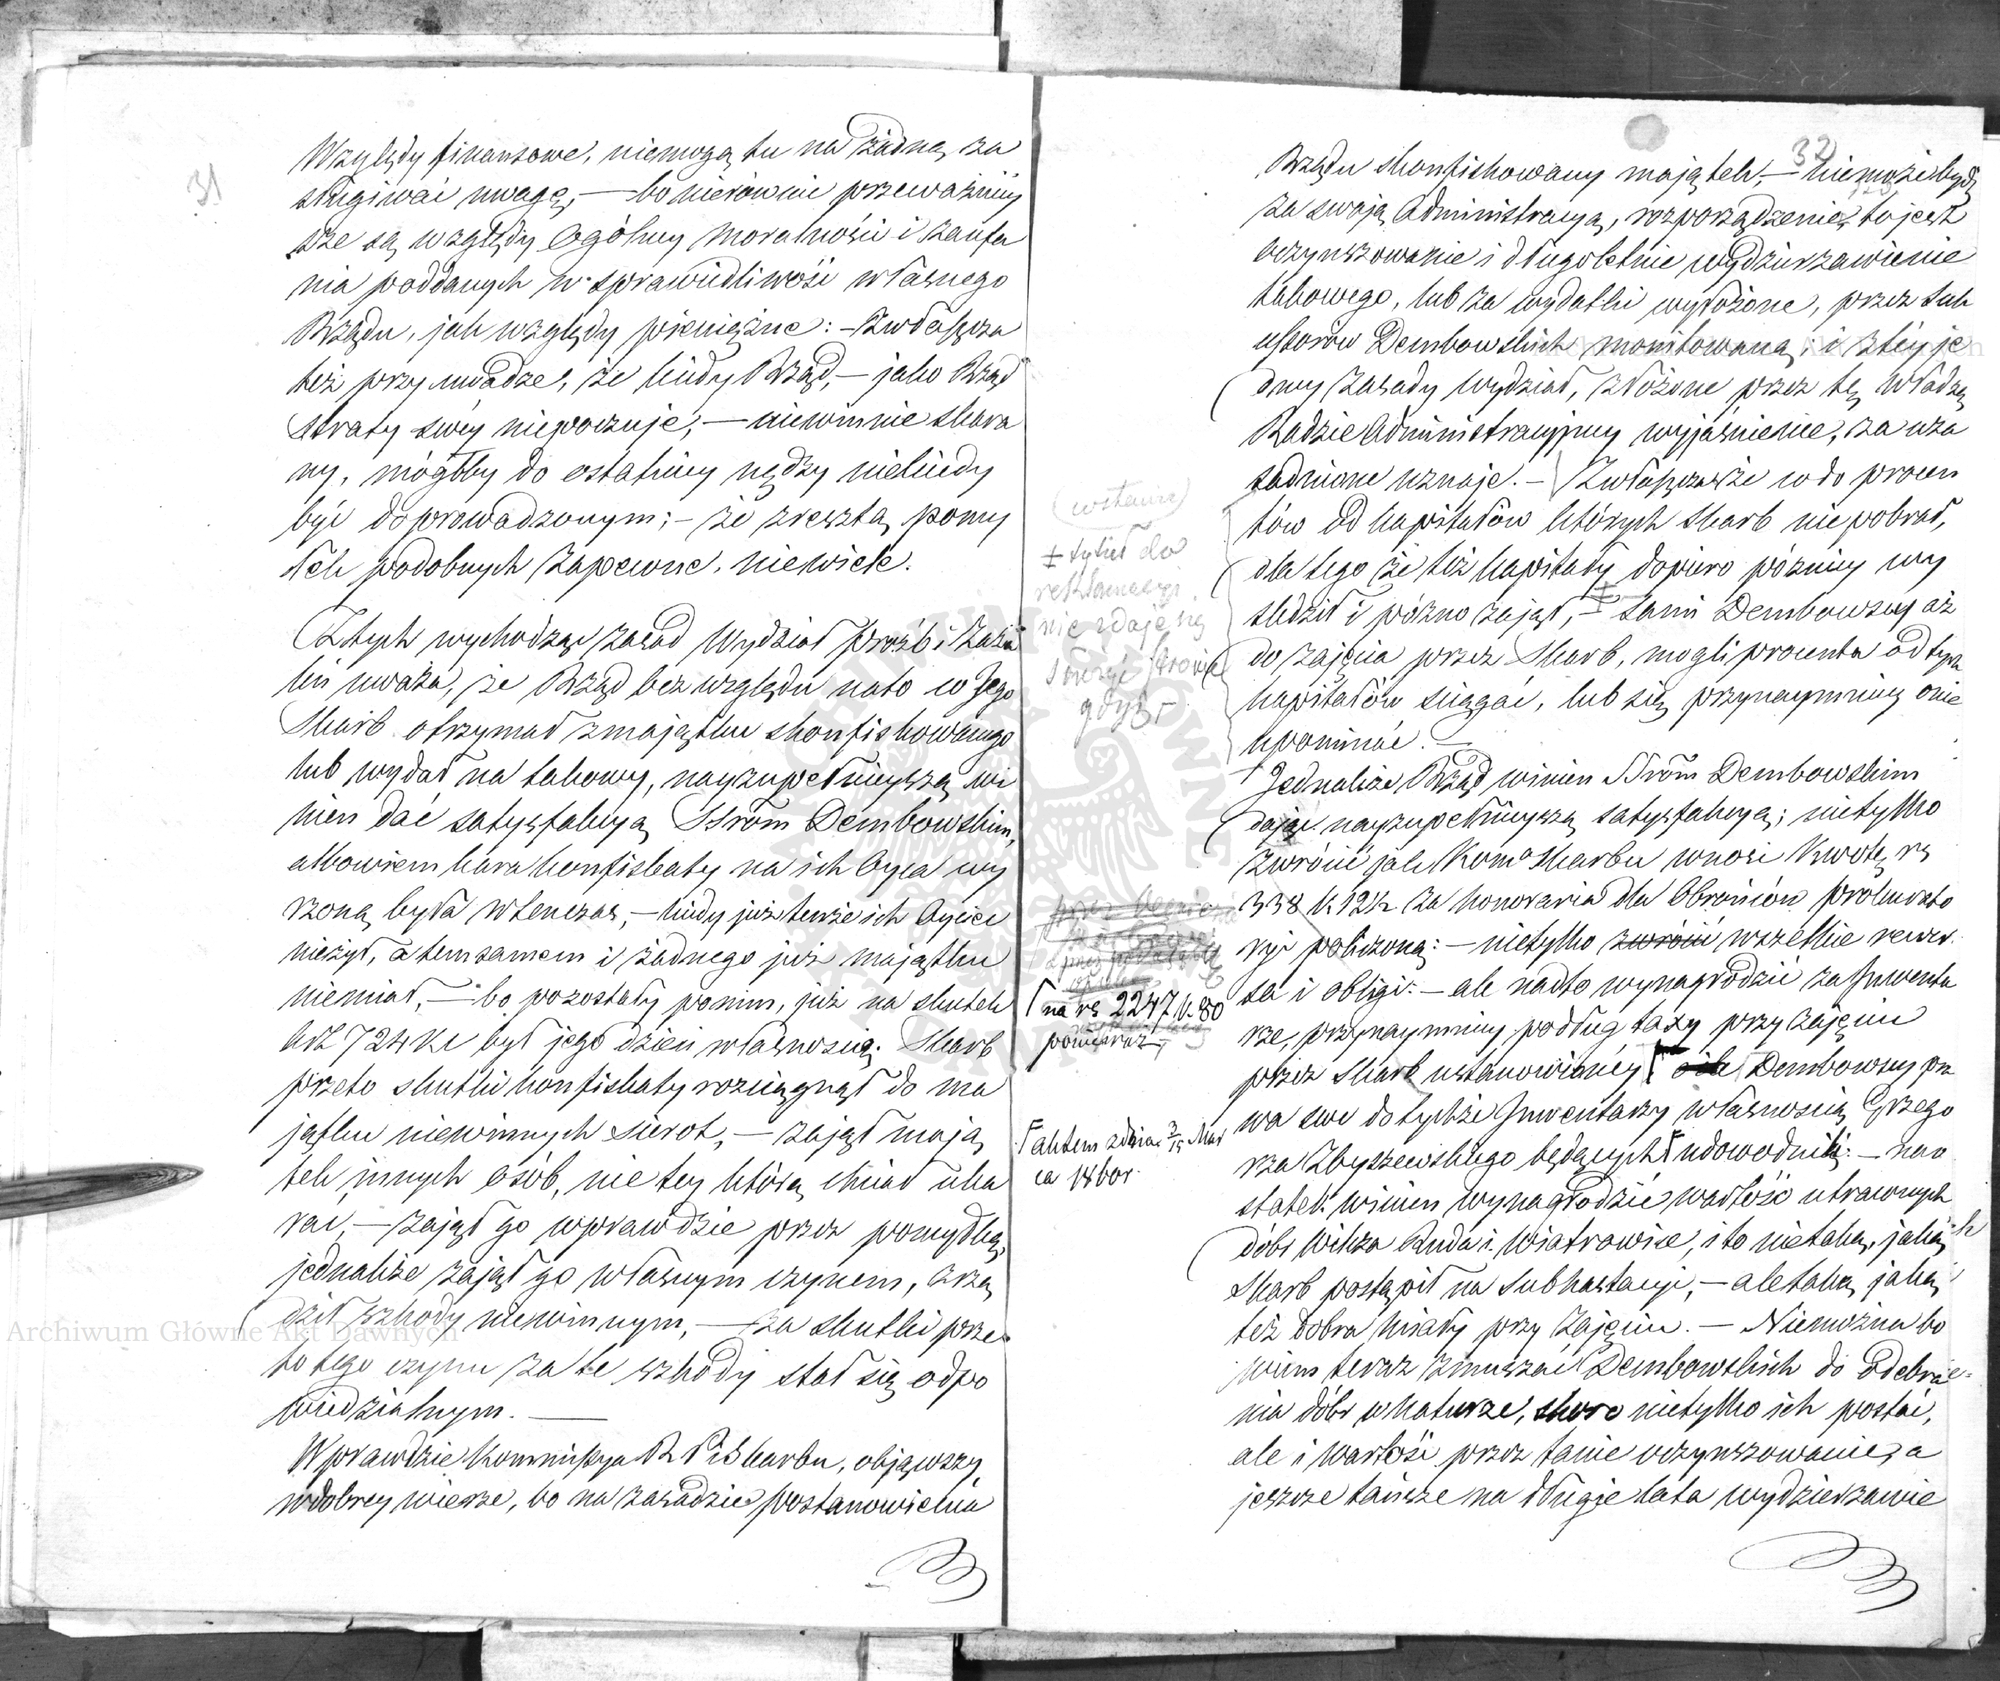 31
Względy finansowe, niemogą tu na żadną za
sługiwać uwagę, — bo nierównie przeważniey
sze są względy Ogólney moralności i zaufa
nia poddanych w sprawiedliwość własnego
Rządu, jak względy pieniężne: — Zwłaszcza
też przy uwadze, że kiedy Rząd, — jako Rząd
straty swéy niepoczuje, — niewinnie skara
ny, mógłby do ostatniey nędzy niekiedy
być doprowadzonym; — że zresztą pomy
łek podobnych zapewne, niewiele.
Z tych wychodząc zasad Wydział Próśb i Zaża
leń uważa, że Rząd bez względu na to co Jego
Skarb otrzymał z majątku skonfiskowanego
lub wydał na takowy, nayzupełnieyszą wi
nien dać satysfakcyą SSrom Dembowskim,
albowiem kara konfiskaty na ich Oyca wy
rzoną była wtenczas, — kiedy już tenże ich Oyciec
nieżył, a tem samem i żadnego już majątku
niemiał, — bo pozostały po nim, już na skutek
Art 724 KC był jego dzieci własnością. Skarb
przeto skutki konfiskaty rozciągnął do ma
jątku niewinnych sierot, — zajął mają
tek innych osób, nie tey którą chciał uka
rać, — zajął go wprawdzie przez pomyłkę,
jednakże zajął go własnym czynem, zrzą
dził szkody niewinnym, — za skutki prze
to tego czynu za te szkody stał się odpo
wiedzialnym. —
Wprawdzie Kommissya R P i Skarbu, objąwszy
w dobrey wierze, bo na zasadzie postanowienia
32
Rządu skonfiskowany majątek, — niemoże bydź
za swoją Administracyą, rozporządzenie, to jest
oczynszowanie i długoletnie wydzierżawienie
takowego, lub za wydatki wyłożone, przez Suk
cessorów Dembowskich monitowaną; i z téy je
dney zasady Wydział, złożone przez tę władzę
Radzie Administracyjney wyjaśnienie, za uza
sadnione uznaje. — Zwłaszcza że co do procen
tów od kapitałów których Skarb nie pobrał,
dla tego że też kapitały dopiero późniey wy
śledził i późno zajął, — sami Dembowscy aż
do zajęcia przez Skarb, mogli procenta od tych
kapitałów ściągać, lub się przynaymniey o nie
upominać. —
Jednakże Rząd winien SSrom Dembowskim
dając nayzupełnieyszą satysfakcyą; nietylko
zwrócić jak Komo Skarbu wnosi Kwotę rs
338 k 12½ za honoraria dla Obrońców prokurato
ryi policzoną: — nietylko zwrócić wszelkie rewer
sa i obligi: — ale nadto wynagrodzić za Inwenta
rze, przynaymniey podług taxy przy zajęciu
przez Skarb ustanowionéy Γ o ile Dembowscy pra
wa swe do tychże Inwentarzy własnością Grzego
rza Zbyszewskiego będących Γ udowodnili: — nao
statek winien wynagrodzić wartość utraconych
dóbr Wilcza Ruda i Wiatrowice, i to nietaką, jaką
Skarb postąpił na subhastacyi, — ale taką jaką
też dobra miały przy zajęciu. — Niemożna bo
wiem teraz zmuszać Dembowskich do odebra-
nia dóbr w naturze, skoro nietylko ich postać,
ale i wartość przez tanie oczynszowanie, a
jeszcze tańsze na długie lata wydzierżawie
(wstawia)
+ tytuł do
reklamacyi
nie zdaje się
służyć stronie
gdyż Γ
Γ na rs 2247 k. 80
ponieważ
Γ aktem z dnia 3/15 Mar
ca 1860 r.
Archiwum Główne Akt Dawnych